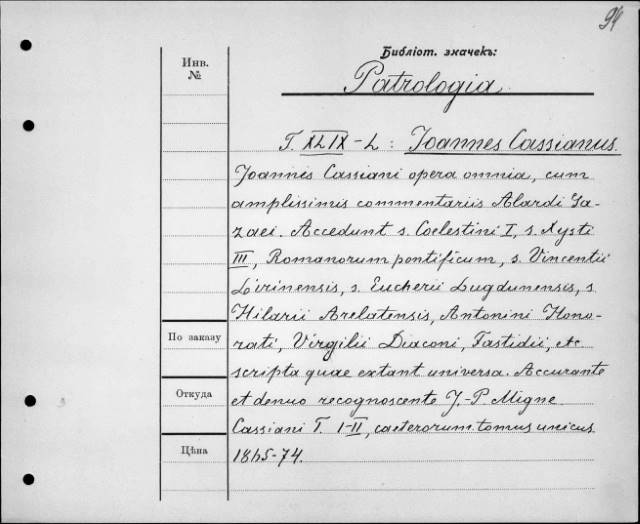 94
Библіот. значекъ:
Инв.
№
Patrologia
T. XLIX-L: Joannes Cassianus
Joannis Cassiani opera omnia, cum
amplissimis commentariis Alardi Ga-
zaei. Accedunt s. Coelestini I, s. Xysti
III, Romanorum pontificum, s. Vincentii
Lirinensis, s. Eucherii Lugdunensis, s
Hilarii Arelatensis, Antonini Hono-
По заказу
rati, Virgilii Diaconi, Fastidii, etc
scripta quae extant universa. Accurante
Откуда
et denuo recognoscente J.-P. Migne
Cassiani T. I-II, caeterorum tomus unicus
Цѣна
1865-74.